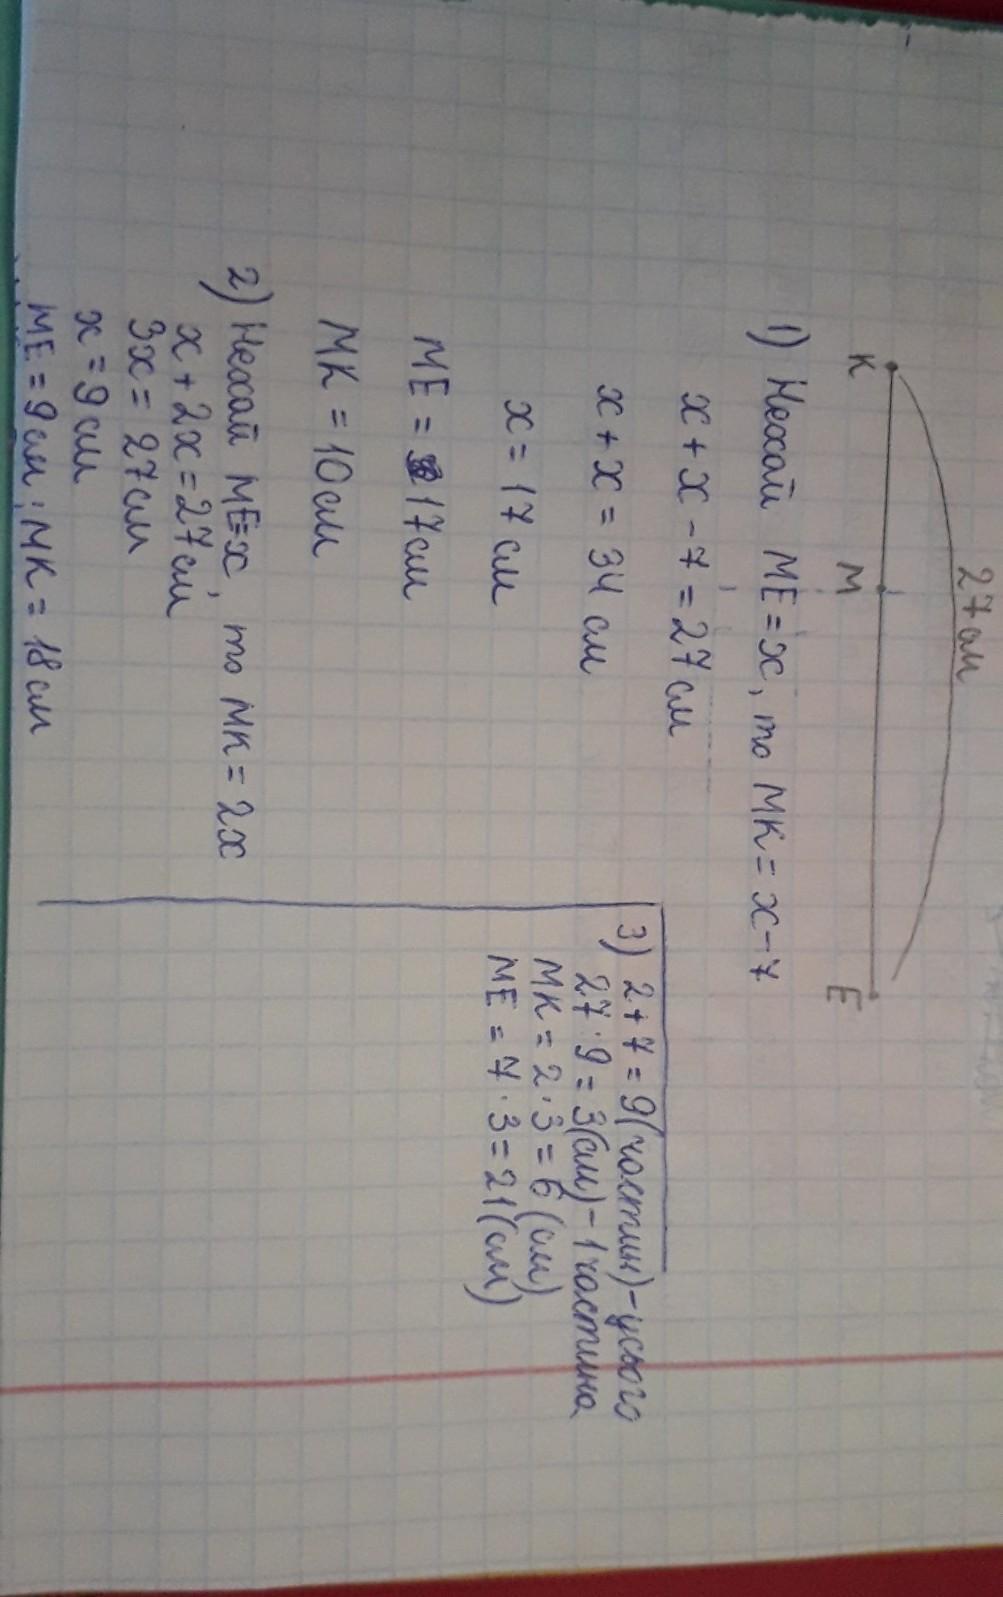 27см
K M E
1) Нехай ME=x, то MK=x-7
x+x-7=27см
x+x=34 см
x=17см
ME=17см
MK=10см
2) Нехай ME=x, то MK=2x
x+2x=27см
3x=27см
x=9см
ME=9см; MK=18см
3) 2+7=9(частин)-усього
27:9=3(см)-1частина
MK=2·3=6(см)
ME=7·3=21(см)